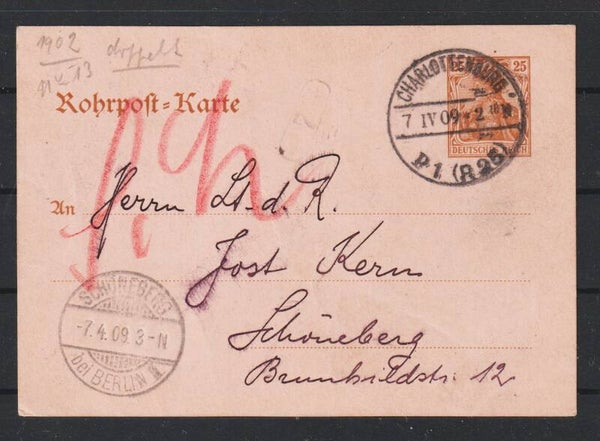 1902
doppelt
Rohrpost-Karte
CHARLOTTENBURG
7 IV 09 2
P.1 (R25)
25
DEUTSCHES REICH
An
Herrn Lt. d. R.
Jost Kern
Schöneberg
Brunhildstr. 12
SCHÖNEBERG
-7.4.09. 3-N
bei BERLIN